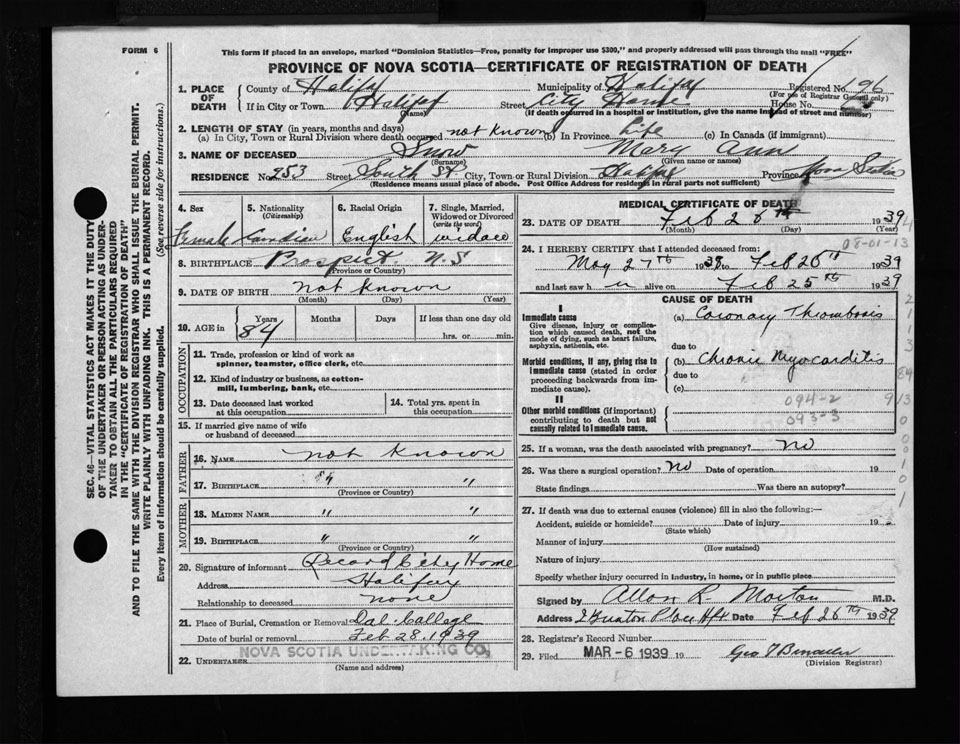 FORM 6
This form if placed in an envelope, marked "Dominion Statistics—Free, penalty for improper use $300," and properly addressed will pass through the mail "FREE"
PROVINCE OF NOVA SCOTIA—CERTIFICATE OF REGISTRATION OF DEATH
SEC. 46—VITAL STATISTICS ACT MAKES IT THE DUTY
OF THE UNDERTAKER OR PERSON ACTING AS UNDER-
TAKER TO OBTAIN ALL THE PARTICULARS REQUIRED
IN THE "CERTIFICATE OF REGISTRATION OF DEATH"
AND TO FILE THE SAME WITH THE DIVISION REGISTRAR WHO SHALL ISSUE THE BURIAL PERMIT.
WRITE PLAINLY WITH UNFADING INK. THIS IS A PERMANENT RECORD.
Every item of information should be carefully supplied. (See reverse side for instructions.)
1. PLACE OF DEATH
County of Halifax Municipality of Halifax Registered No. 96
(For use of Registrar General only)
If in City or Town Halifax Street City Home House No.
(Name) (If death occurred in a hospital or institution, give the name instead of street and number)
2. LENGTH OF STAY (in years, months and days)
(a) In City, Town or Rural Division where death occurred not known (b) In Province Life (c) In Canada (if immigrant)
3. NAME OF DECEASED Snow Mary Ann
(Surname) (Given name or names)
RESIDENCE No. 253 Street South St City, Town or Rural Division Halifax Province Nova Scotia
(Residence means usual place of abode. Post Office Address for residents in rural parts not sufficient)
4. Sex Female
5. Nationality (Citizenship) Canadian
6. Racial Origin English
7. Single, Married, Widowed or Divorced (write the word) widow
8. BIRTHPLACE Prospect N.S
(Province or Country)
9. DATE OF BIRTH not known
(Month) (Day) (Year)
10. AGE in Years 84 Months Days If less than one day old
hrs. or min.
OCCUPATION
11. Trade, profession or kind of work as spinner, teamster, office clerk, etc.
12. Kind of industry or business, as cotton-mill, lumbering, bank, etc.
13. Date deceased last worked at this occupation
14. Total yrs. spent in this occupation
15. If married give name of wife or husband of deceased
FATHER
16. NAME not known
17. BIRTHPLACE " "
(Province or Country)
MOTHER
18. MAIDEN NAME " "
19. BIRTHPLACE " "
(Province or Country)
20. Signature of informant Record City Home
Address Halifax
Relationship to deceased none
21. Place of Burial, Cremation or Removal Dal. College
Date of burial or removal Feb 28. 1939
22. UNDERTAKER NOVA SCOTIA UNDERTAKING CO.
(Name and address)
MEDICAL CERTIFICATE OF DEATH
23. DATE OF DEATH Feb 26th 1939
(Month) (Day)
08-01-13
24. I HEREBY CERTIFY that I attended deceased from:
May 27th 1938 to Feb 26th 1939
and last saw h alive on Feb 25th 1939
CAUSE OF DEATH
I
Immediate cause
Give disease, injury or complication which caused death, not the mode of dying, such as heart failure, asphyxia, asthenia, etc.
(a) Coronary Thrombosis
due to
Morbid conditions, if any, giving rise to immediate cause (stated in order proceeding backwards from immediate cause).
(b) Chronic Myocarditis
due to
(c)
II
Other morbid conditions (if important) contributing to death but not causally related to immediate cause.
094-2
093-3
25. If a woman, was the death associated with pregnancy? No
26. Was there a surgical operation? No Date of operation 19
State findings Was there an autopsy?
27. If death was due to external causes (violence) fill in also the following:—
Accident, suicide or homicide? Date of injury 19
(State which)
Manner of injury
(How sustained)
Nature of injury
Specify whether injury occurred in industry, in home, or in public place
Signed by Allan R. Morton M.D.
Address Hfx Date Feb 26th 1939
28. Registrar's Record Number
29. Filed MAR - 6 1939 19
(Division Registrar)